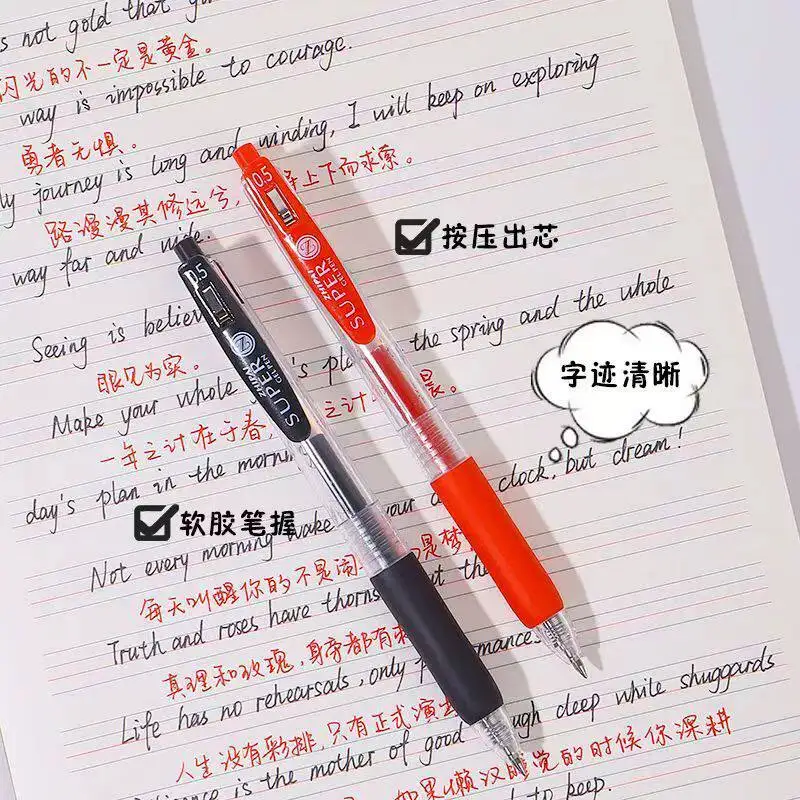 s not gold that
闪光的不一定是黄金。
way is impossible to courage.
勇者无惧。
journey is long and winding, I will keep on exploring
路漫漫其修远兮， 上下而求索。
way far and wide.
按压出芯
0.5
ZHIPAI
SUPER
GEL PEN
Z
.5
ZHIPAI
SUPER
GEL PEN
Z
Seeing is believ
眼见为实。
字迹清晰
Make your whole 's pla the spring and the whole
一年之计在于春， 之计 晨。
day's plan in the morn
软胶笔握
Not every morning wake your clock, but dream!
每天叫醒你的不是闹 是梦
Truth and roses have thorns
真理和玫瑰，身旁都有刺
Life has no rehearsals, only performances
人生没有彩排，只有正式演出
is the mother of good deep while shuggards
如果懒汉睡觉的时候你深耕
to keep.